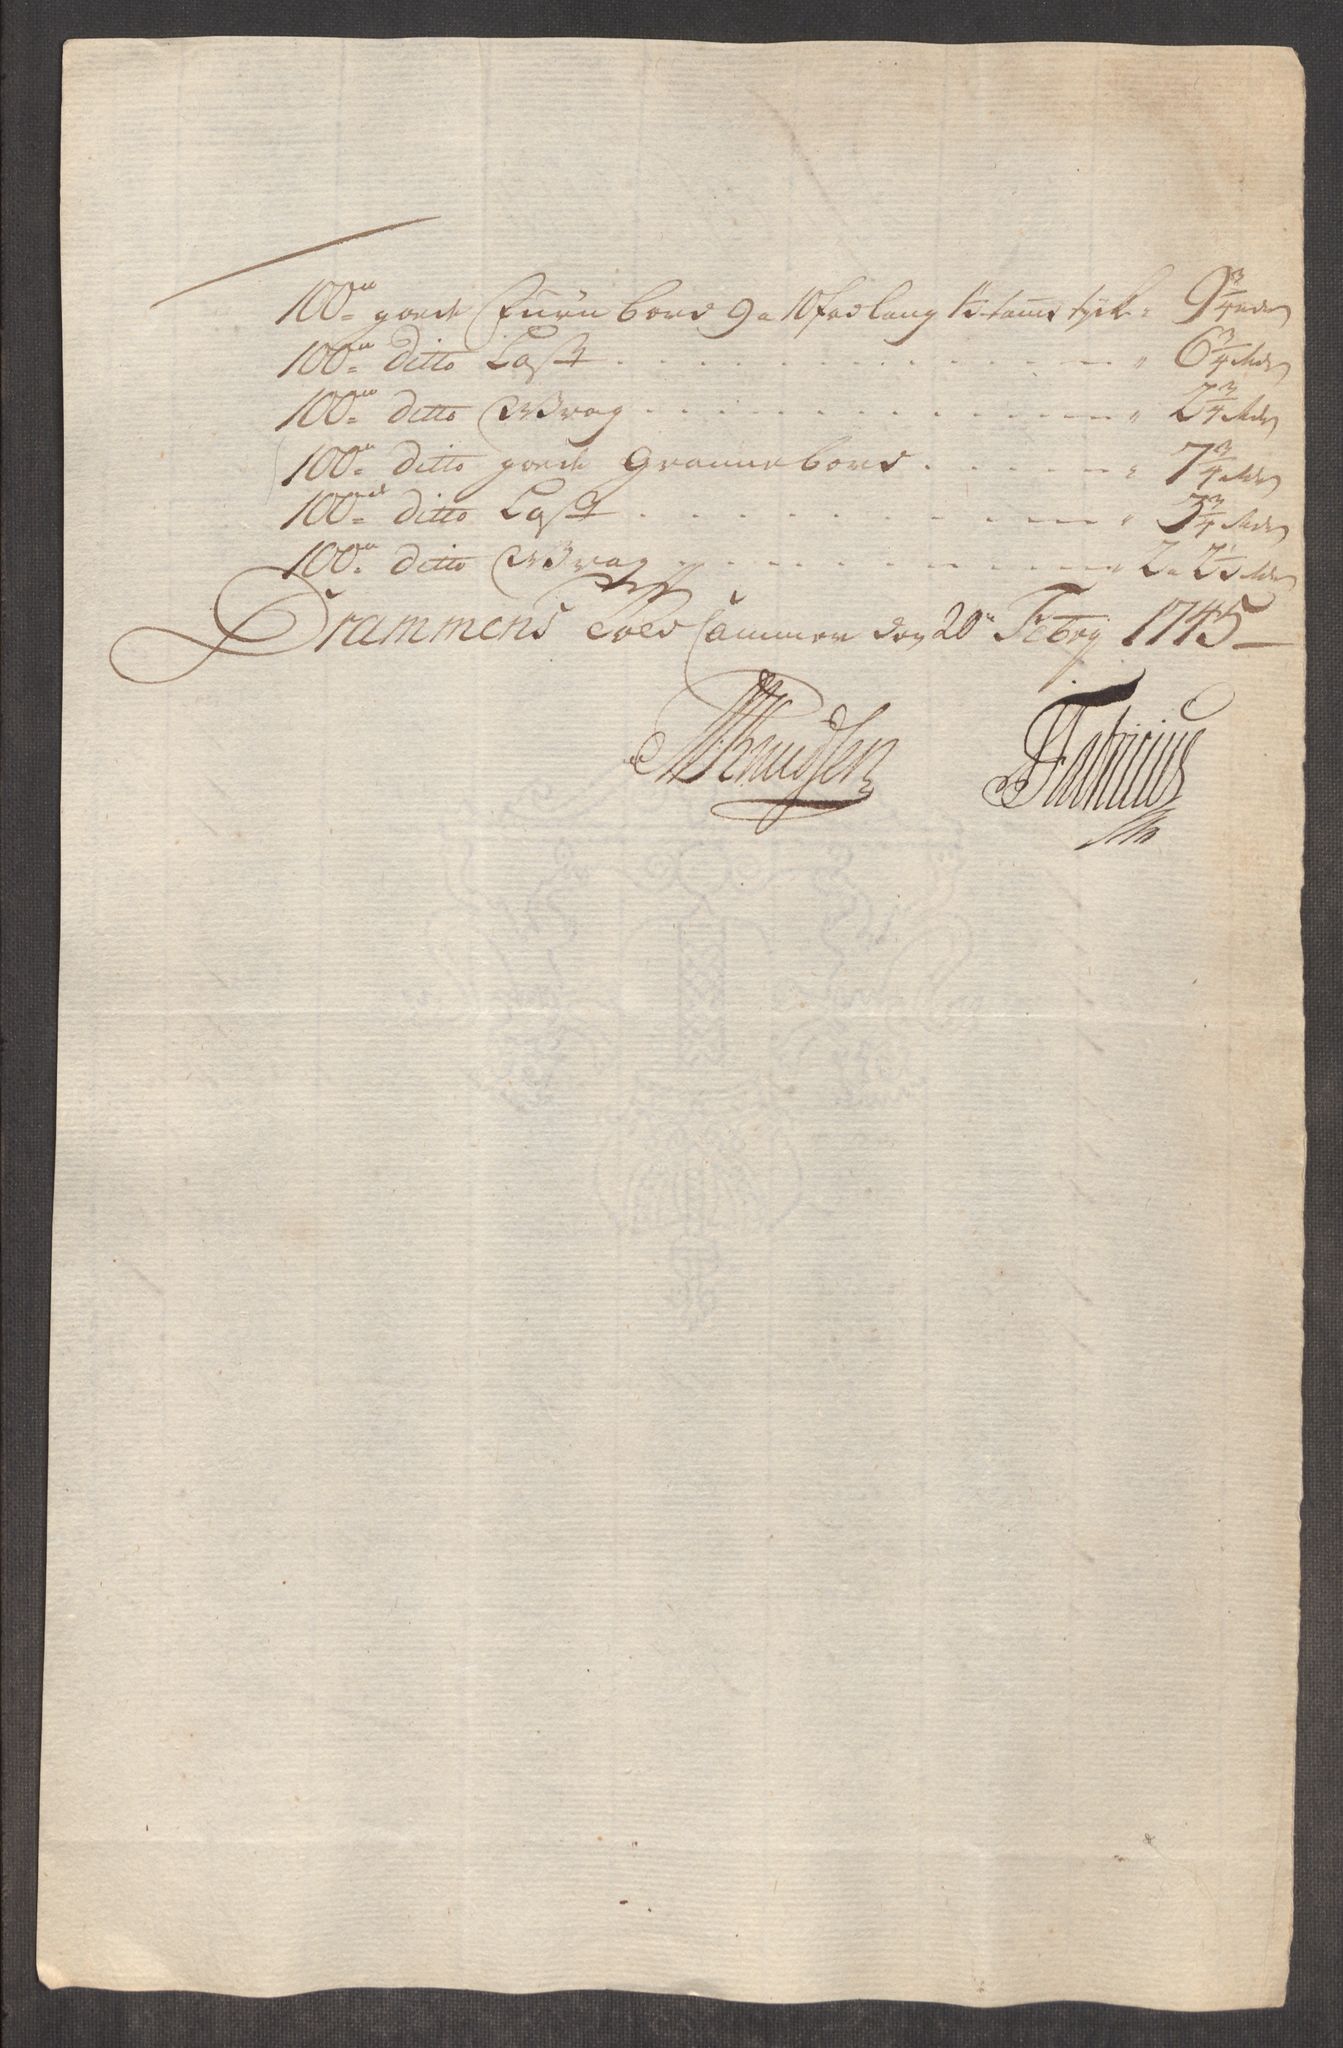 100de goede Furu bord 9 a 10 fod lang 1½ tomb tyck " 9¾ rdr
100de ditto Last " 6¾ rdr
100de ditto Wrag " 2¾ rdr
100de ditto goede Granne bord " 7¾ rdr
100de ditto Last " 3¾ rdr
100de ditto Wrag " 2 a 2½ rdr
Drammens Told Cammer den 20de Febry 1745
Knudsen Fabricius